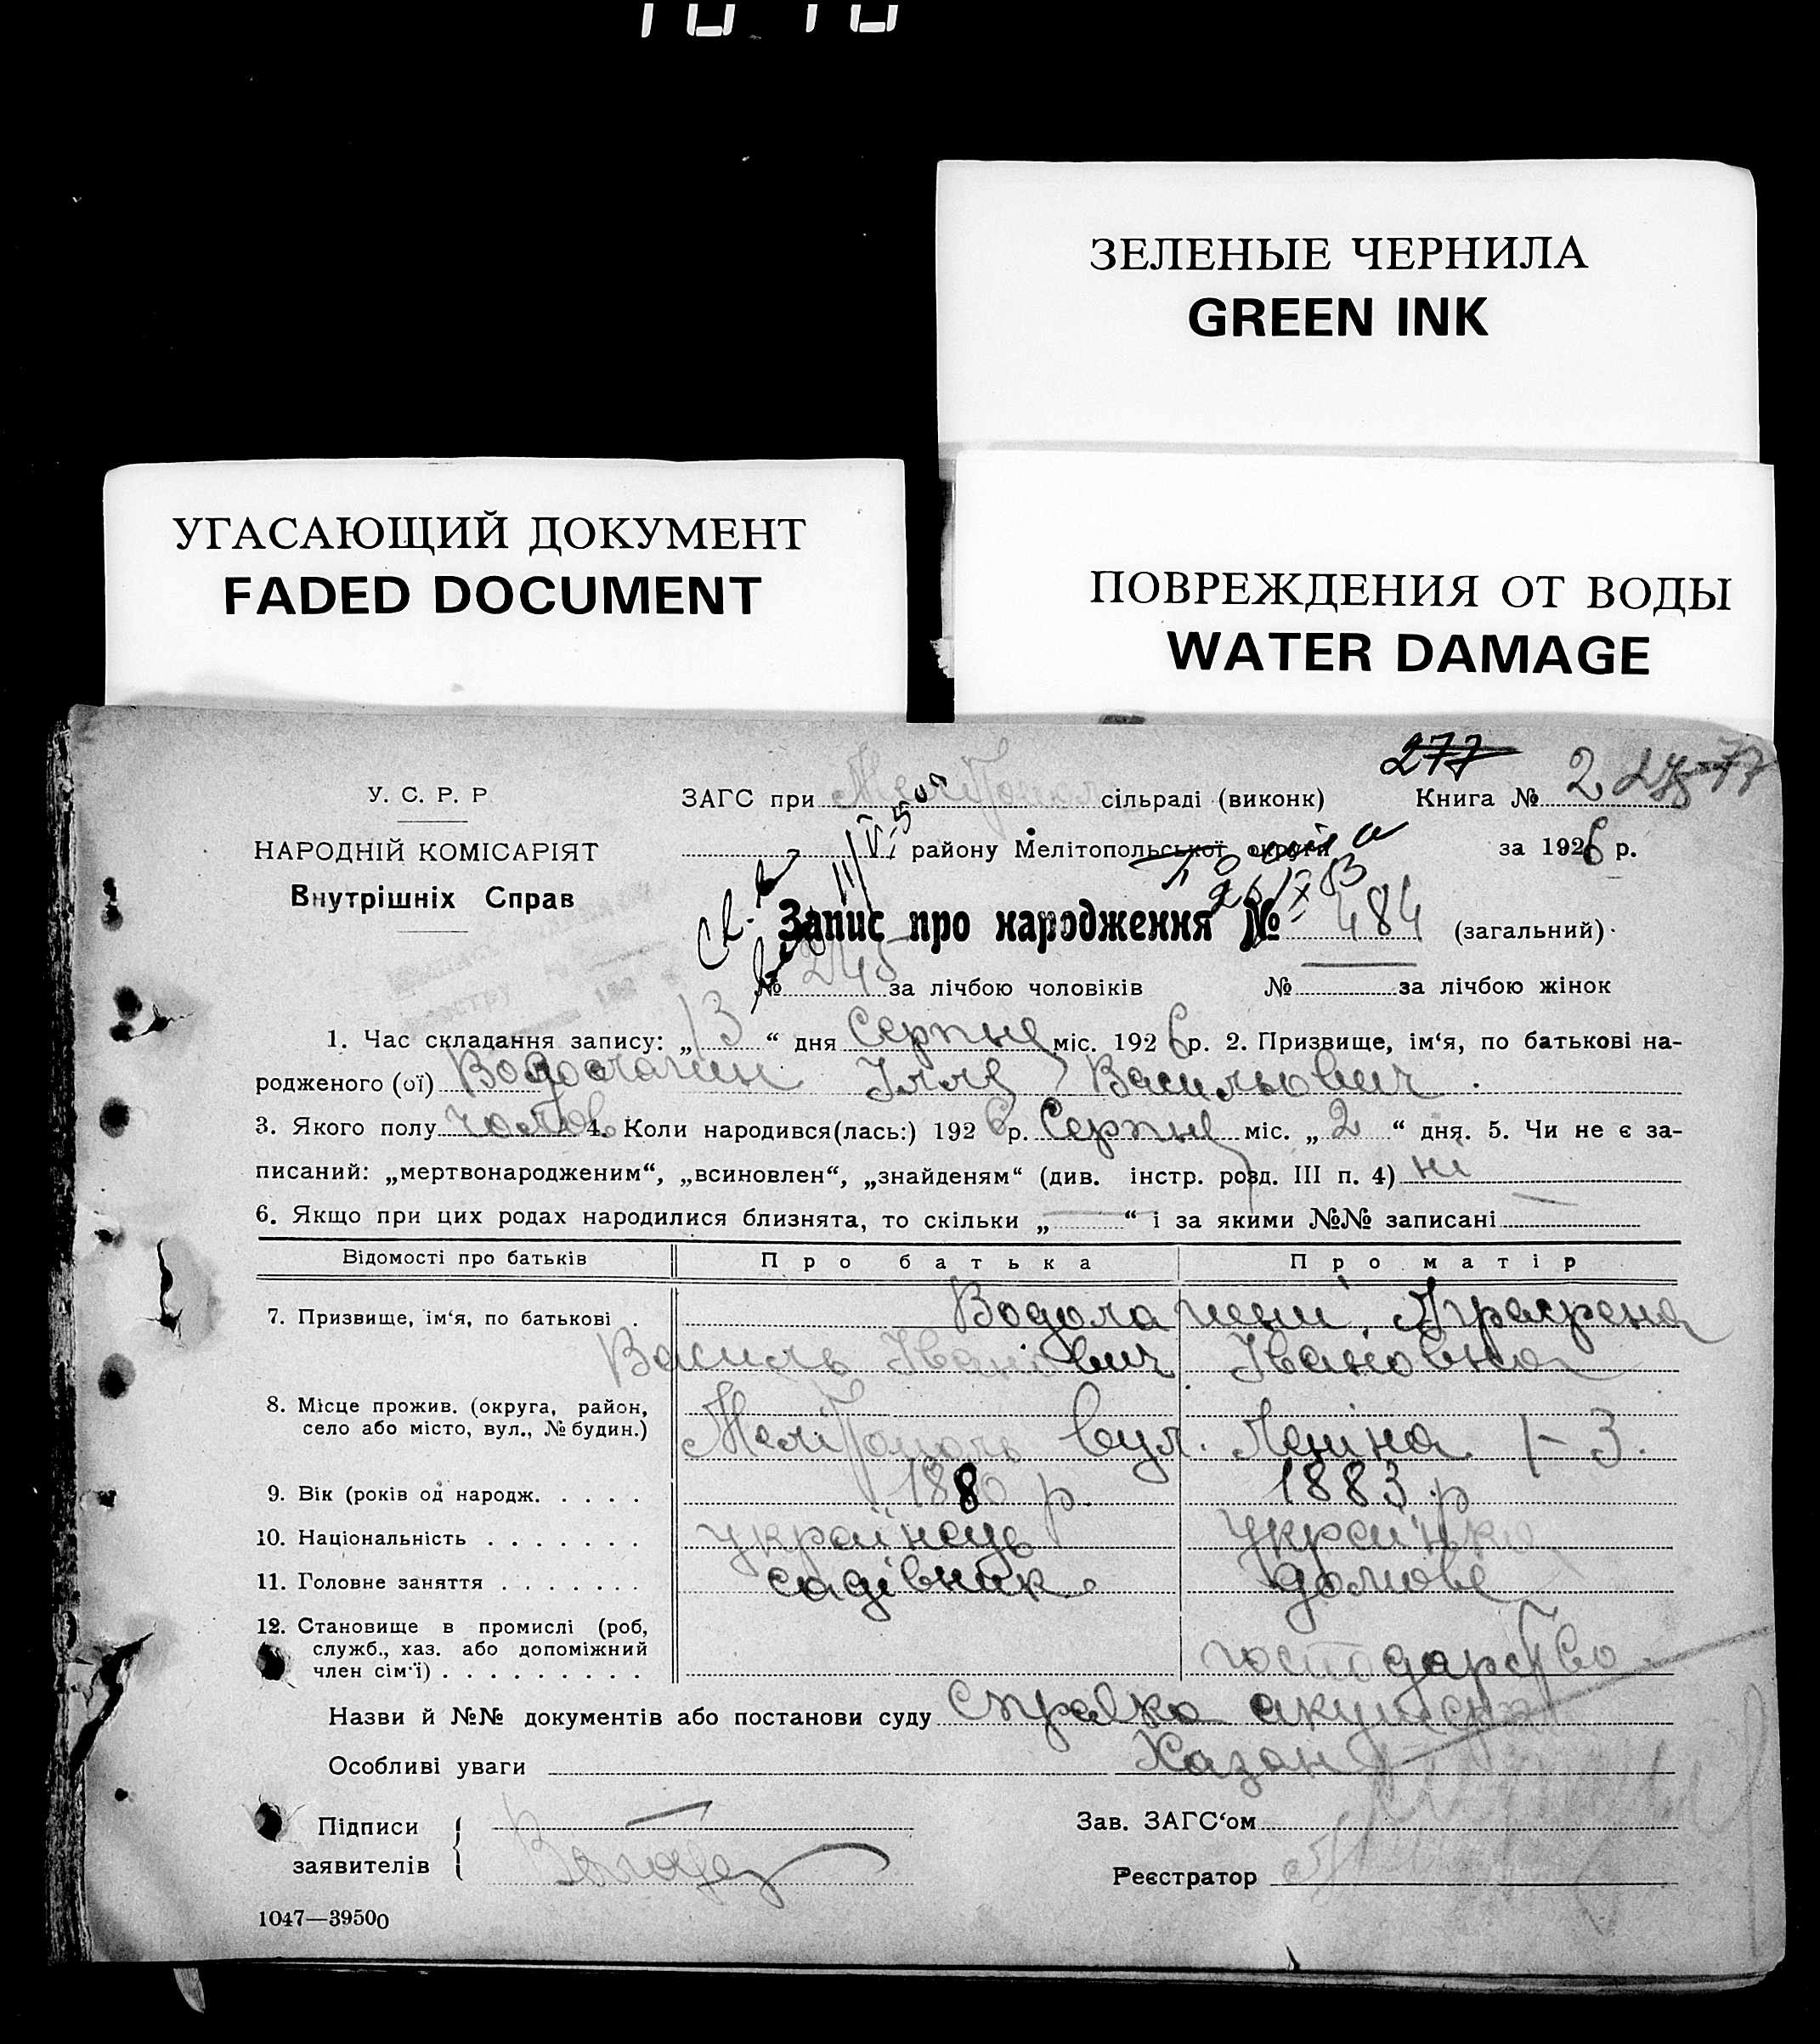 ЗЕЛЕНЫЕ ЧЕРНИЛА
GREEN INK
УГАСАЮЩИЙ ДОКУМЕНТ
FADED DOCUMENT
ПОВРЕЖДЕНИЯ ОТ ВОДЫ
WATER DAMAGE
277
У. С. Р. Р.
ЗАГС при Мелітополь сільраді (виконк) Книга № 2
НАРОДНІЙ КОМІСАРІЯТ
району Мелітопольської округи за 1926 р.
Внутрішніх Справ
Запис про народження № 484 (загальний)
№ 245 за лічбою чоловіків № за лічбою жінок
1. Час складання запису: „13“ дня Серпня міс. 1926 р. 2. Призвище, ім‘я, по батькові на-
родженого (ої) Ілля Васильович
3. Якого полу чолов 4. Коли народився(лась:) 1926 р. Серпня міс. „2“ дня. 5. Чи не є за-
писаний: „мертвонародженим“, „всиновлен“, „знайденям“ (див. інстр. розд. III п. 4) ні
6. Якщо при цих родах народилися близнята, то скільки „—“ і за якими №№ записані —
Відомості про батьків Про батька Про матір
7. Призвище, ім‘я, по батькові . Водола
Василь Іванович Івановна
8. Місце прожив. (округа, район,
село або місто, вул., № будин.) Мелітополь вул. Леніна 1-3.
9. Вік (років од народж. . . . . 1880 р. 1883 р
10. Національність . . . . . . . українець українка
11. Головне заняття . . . . . . . садівник домове
12. Становище в промислі (роб,
служб., хаз. або допоміжний
член сім‘ї) . . . . . . . . . господарство
Назви й №№ документів або постанови суду Справка акушерки
Особливі уваги Хазан
Підписи
заявителів
Зав. ЗАГС‘ом
Реєстратор
1047—39500